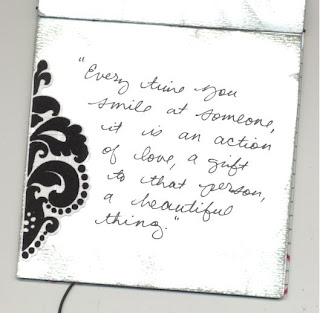 "Every time you
smile at someone,
it is an action
of love, a gift
to that person,
a beautiful
thing."